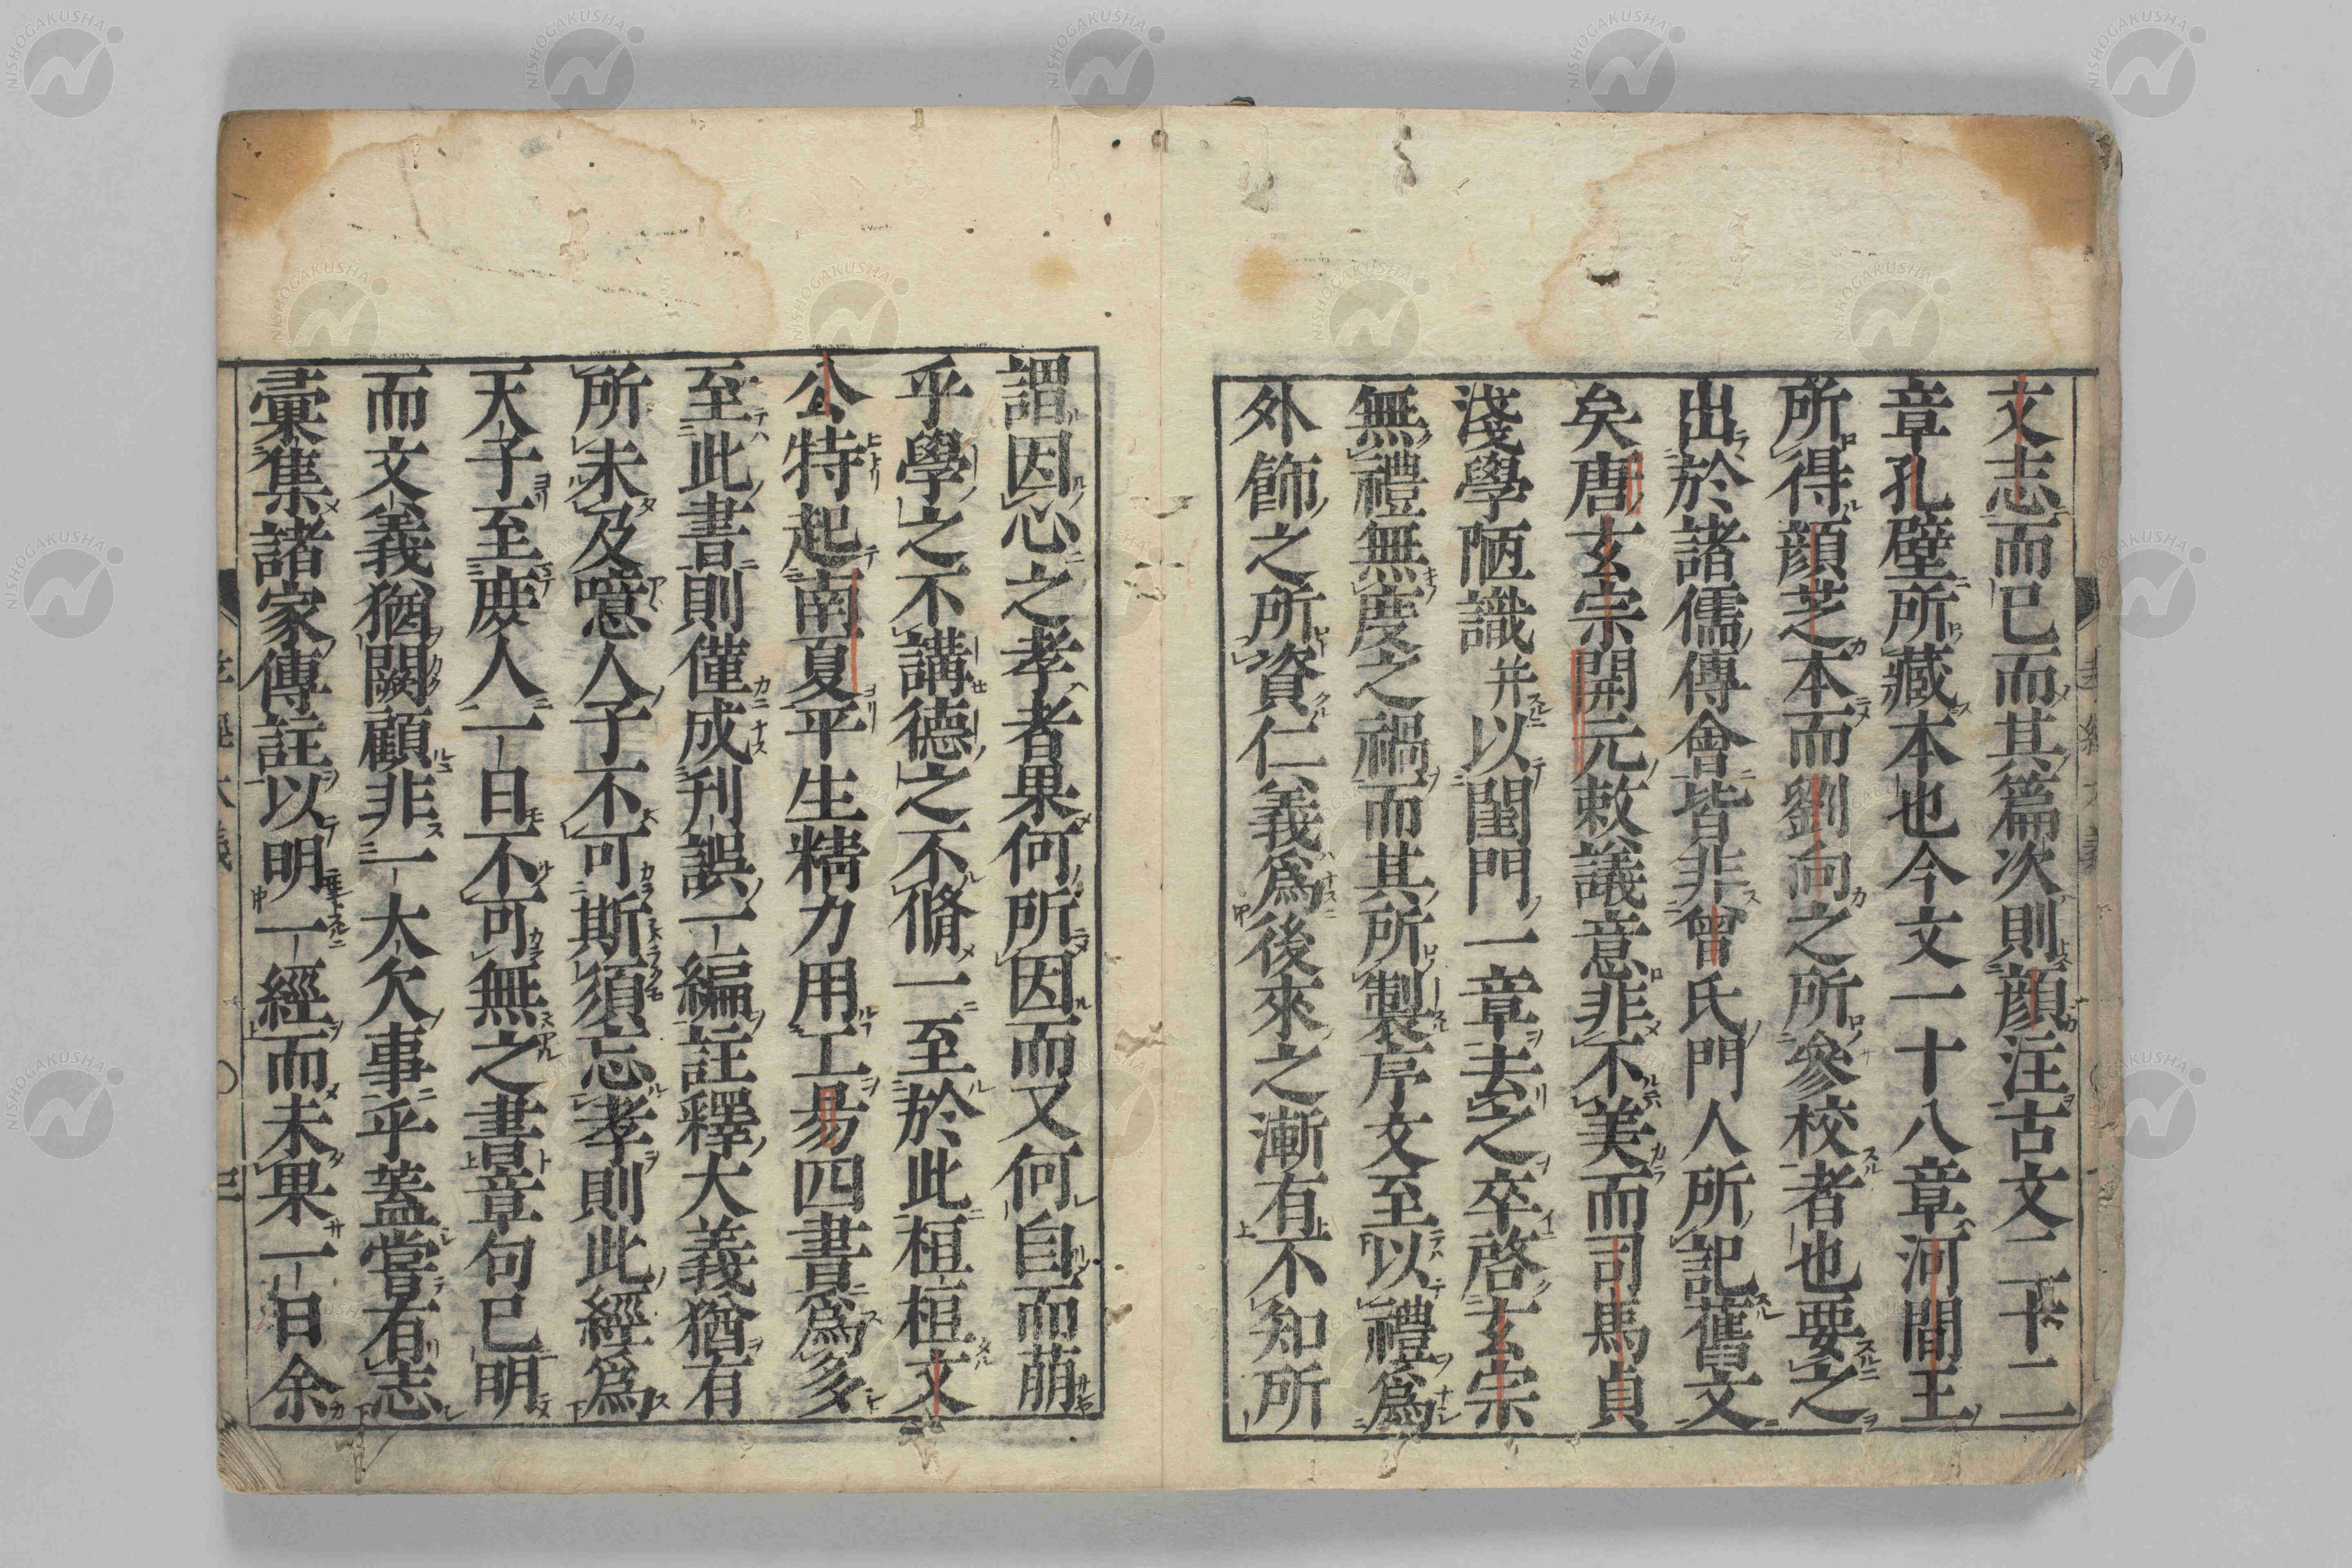 文志而已而其篇次則顔注古文二十二
章孔壁所藏本也今文一十八章河間王
所得顔芝本而劉向之所參校者也要之
出於諸儒傳會皆非曾氏門人所記舊文
矣唐玄宗開元敕議意非不美而司馬貞
淺學陋識并以閨門一章去之卒啓玄宗
無禮無度之禍而其所製序文至以禮為
外飾之所資仁義為後來之漸有不知所
謂因心之孝者果何所因而又何自而萠
乎學之不講德之不脩一至於此桓桓文
公特起南夏平生精力用工易四書為多
至此書則僅成刋誤一編註釋大義猶有
所未及噫人子不可斯須忘孝則此經為
天子至慶人一日不可無之書章句已明
而文義猶闕顧非一大欠事乎蓋嘗有志
彙集諸家傳註以明一經而未果一日余
NISHOGAKUSHA